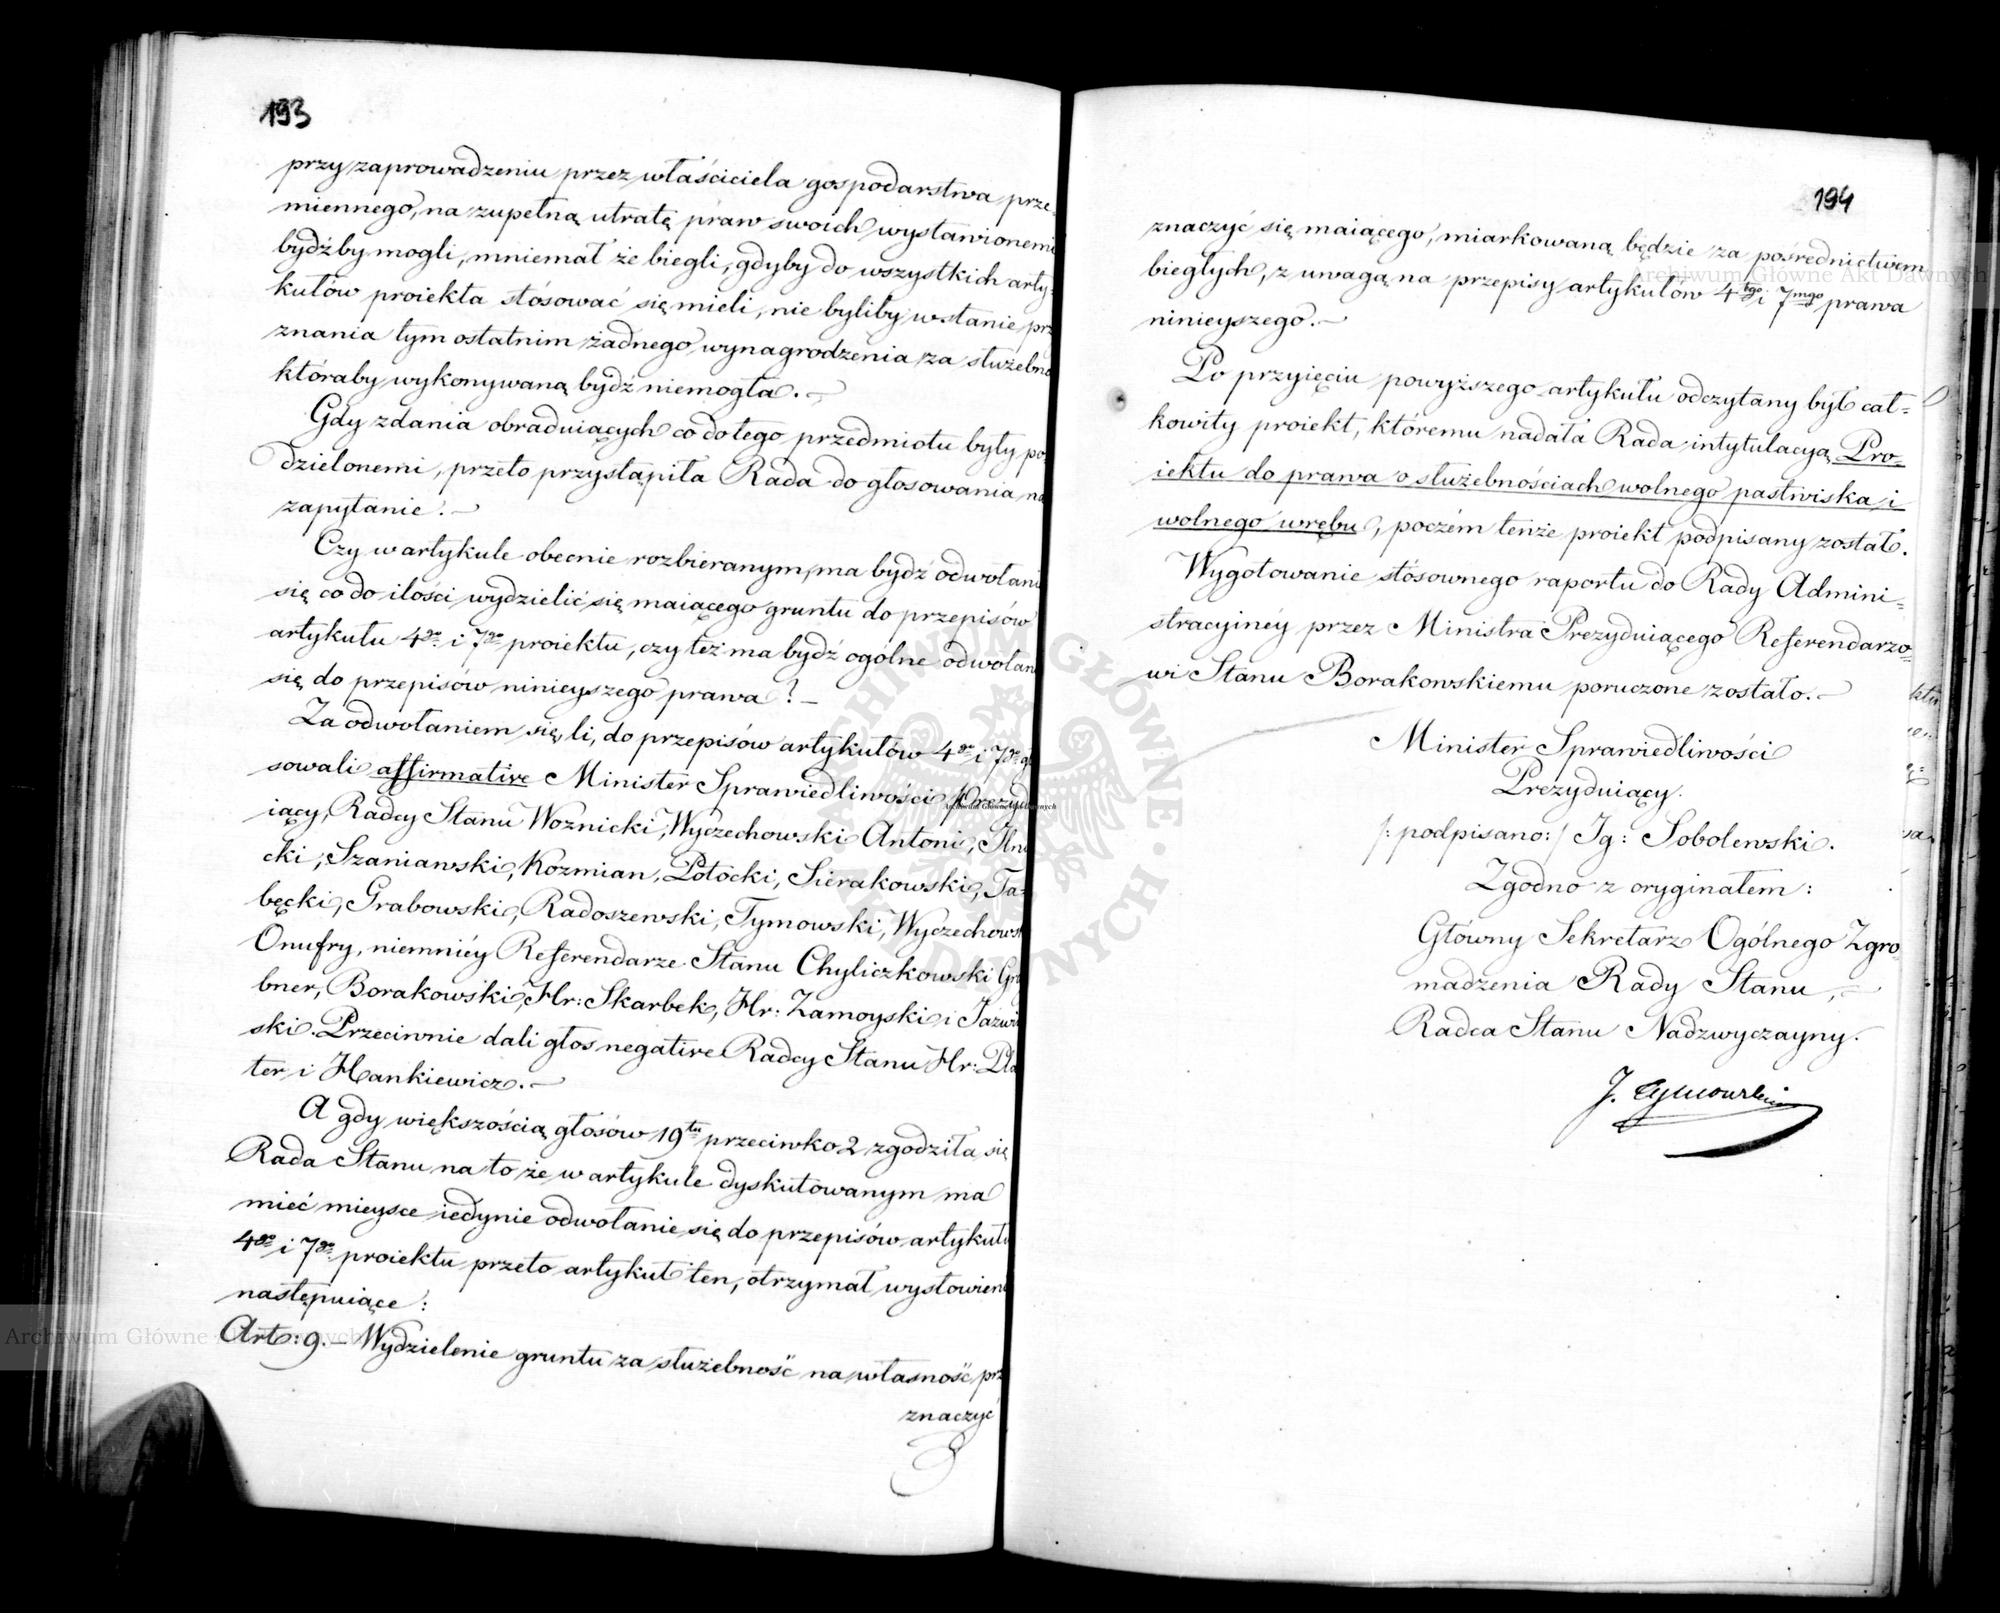 193
przy zaprowadzeniu przez właściciela gospodarstwa prze-
miennego, na zupełną utratę praw swoich wystawionemi
bydźby mogli, mniemał że biegli, gdyby do wszystkich arty-
kułów proiekta stósować się mieli, nie byliby w stanie
znania tym ostatnim żadnego wynagrodzenia za
któraby wykonywaną bydź niemogła.—
Gdy zdania obraduiących co do tego przedmiotu były po-
dzielonemi, przeto przystąpiła Rada do głosowania na
zapytanie.—
Czy w artykule obecnie rozbieranym, ma bydź
się co do ilości wydzielić się maiącego gruntu do przepisów
artykułu 4go i 7go proiektu, czy też ma bydź ogólne
się do przepisów ninieyszego prawa?—
Za odwołaniem się, li, do przepisów artykułów 4go i 7go
sowali affirmative Minister Sprawiedliwości
iący, Radcy Stanu Woznicki, Wyczechowski Antoni,
cki, Szaniawski, Kozmian, Potocki, Sierakowski, Ta-
bęcki, Grabowski, Radoszewski, Tymowski,
Onufry, niemniéy Referendarze Stanu Chyliczkowski
bner, Borakowski, Hr: Skarbek, Hr: Zamoyski i
ski. Przeciwnie dali głos negative Radcy Stanu Hr: Pla
ter i Hankiewicz.—
A gdy większością głosów 19tu przeciwko 2 zgodziła się
Rada Stanu na to że w artykule dyskutowanym ma
mieć mieysce iedynie odwołanie się do przepisów artykułu
4go i 7go proiektu przeto artykuł ten, otrzymał
następuiące:
Art: 9.— Wydzielenie gruntu za służebność na własność prze
znaczyć
194
znaczyć się maiącego, miarkowaną będzie za pośrednictwem
biegłych, z uwagą na przepisy artykułów 4tego i 7mgo prawa
ninieyszego.—
Po przyięciu powyższego artykułu odczytany był cał-
kowity proiekt, któremu nadała Rada intytulacyą Pro-
iektu do prawa o służebnościach wolnego pastwiska i
wolnego wrębu, poczém tenże proiekt podpisany został.
Wygotowanie stósownego raportu do Rady Admini-
stracyinéy przez Ministra Prezyduiącego Referendarzo-
wi Stanu Borakowskiemu poruczone zostało.—
Minister Sprawiedliwości
Prezyduiący.
/: podpisano:/ Ig: Sobolewski.
Zgodno z oryginałem:
Główny Sekretarz Ogólnego Zgro
madzenia Rady Stanu,—
Radca Stanu Nadzwyczayny.
J. Tymowski
Archiwum Główne Akt Dawnych
Archiwum Główne Akt Dawnych
Archiwum Główne Akt Dawnych
ARCHIWUM GŁÓWNE AKT DAWNYCH